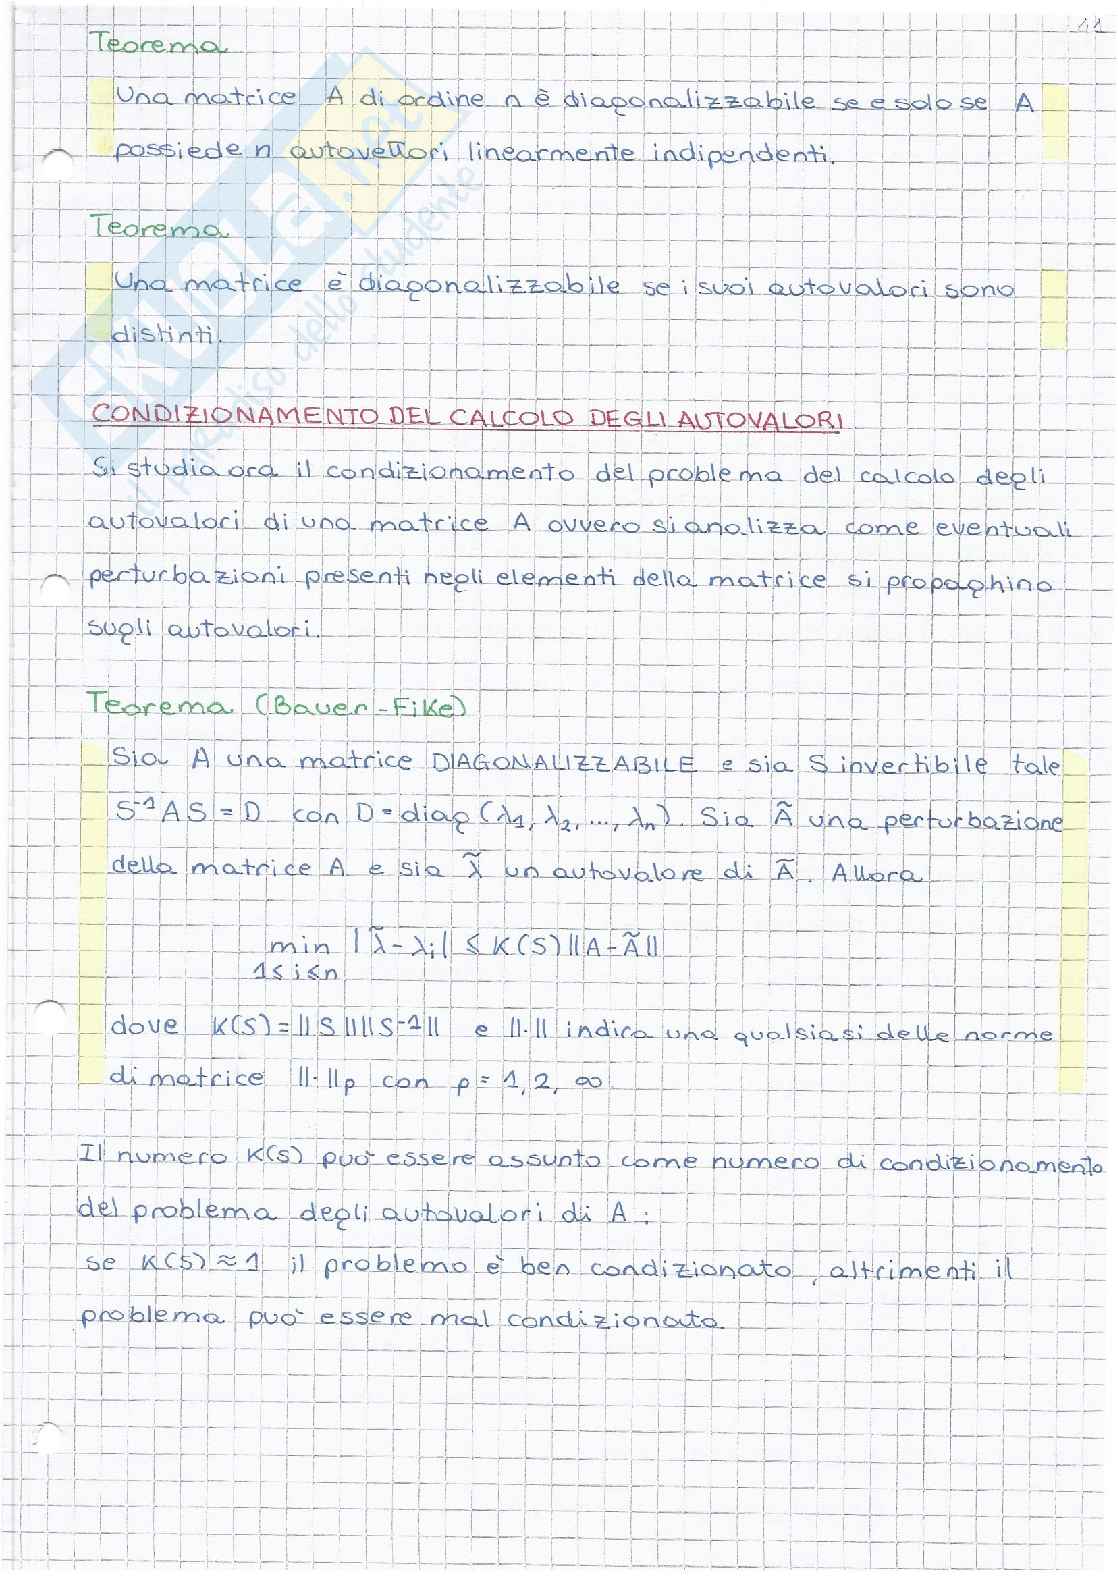 11
Teorema
Una matrice A di ordine n è diagonalizzabile se e solo se A
possiede n autovettori linearmente indipendenti.
Teorema
Una matrice è diagonalizzabile se i suoi autovalori sono
distinti.
CONDIZIONAMENTO DEL CALCOLO DEGLI AUTOVALORI
Si studia ora il condizionamento del problema del calcolo degli
autovalori di una matrice A ovvero si analizza come eventuali
perturbazioni presenti negli elementi della matrice si propaghino
sugli autovalori.
Teorema (Bauer-Fike)
Sia A una matrice DIAGONALIZZABILE e sia S invertibile tale
S⁻¹AS = D con D = diag (λ₁, λ₂, ..., λₙ). Sia Ã una perturbazione
della matrice A e sia λ̃ un autovalore di Ã. Allora
min |λ̃ - λᵢ| ≤ K(S) ||A - Ã||
1≤i≤n
dove K(S) = ||S|| ||S⁻¹|| e ||·|| indica una qualsiasi delle norme
di matrice ||·||ₚ con p = 1, 2, ∞
Il numero K(S) può essere assunto come numero di condizionamento
del problema degli autovalori di A:
se K(S) ≈ 1 il problema è ben condizionato, altrimenti il
problema può essere mal condizionato.
SKUOLA.net
il paradiso dello studente